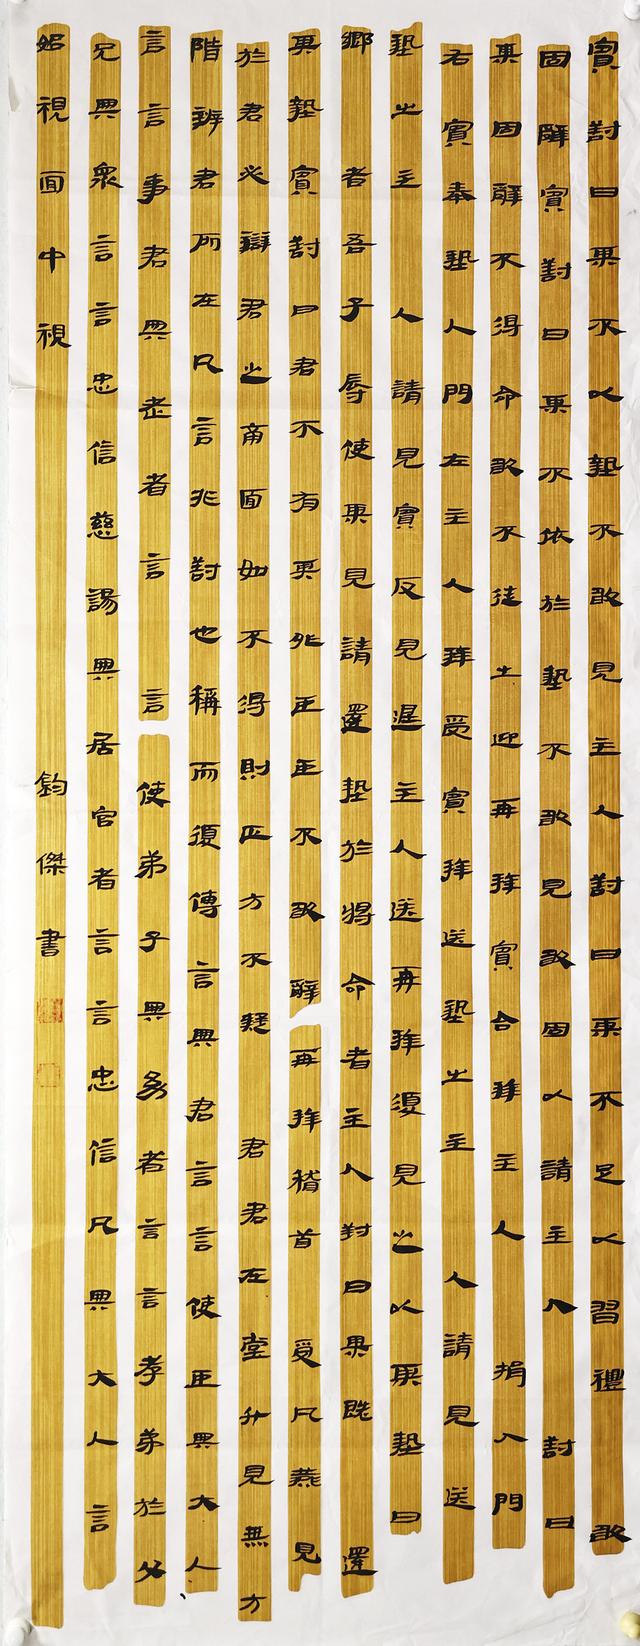 賓對曰某不以摯不敢見主人對曰某不足以習禮敢
固辭賓對曰某不依於摯不敢見敢固以請主人對曰
某固辭不得命敢不從出迎再拜賓合拜主人揖入門
右賓奉摯入門左主人拜受賓拜送摯出主人請見送
摯出主人請見賓反見退主人送再拜復見之以其摯曰
鄉者吾子辱使某見請還摯於將命者主人對曰某既還
其摯賓對曰君不有其外臣臣不敢辭再拜稽首受凡燕見
於君必辯君之南面如不得則正方不疑君君在堂升見無方
階辨君所在凡言非對也稱而復傳言與君言言使臣與大人
言言事君與老者言言使弟子與幼者言言孝弟於父
兄與衆言言忠信慈諹與居官者言言忠信凡與大人言
始視面中視
鈞傑書